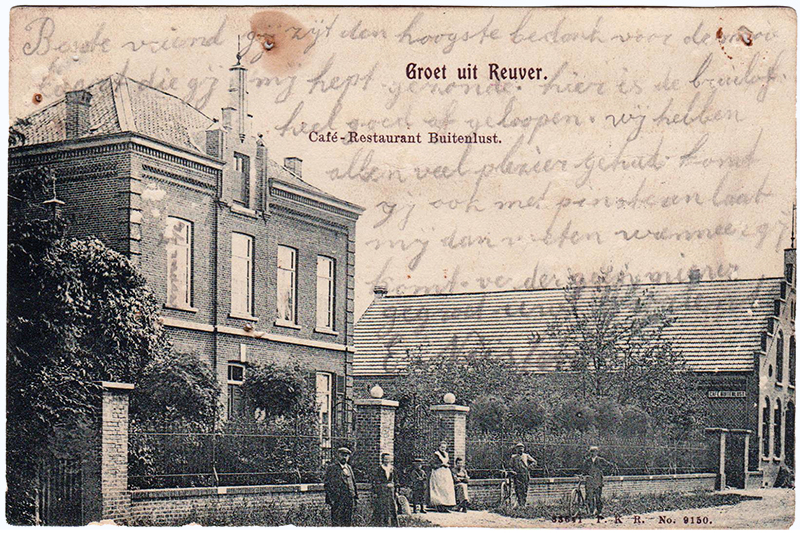 Beste vriend gij zijt den hoogste bedank voor de mooi
kaart die gij mij hept gezonde. hier is de bruilof
Groet uit Reuver.
heel goed af geloopen. wij hebben
Café-Restaurant Buitenlust.
allen veel plezier gehad. komt
gij ook met pinsteren laat
mij dan weten wanneer gij
komt. verder
gegroet
CAFÉ BUITENLUST
33641 P. K. R. No. 9150.